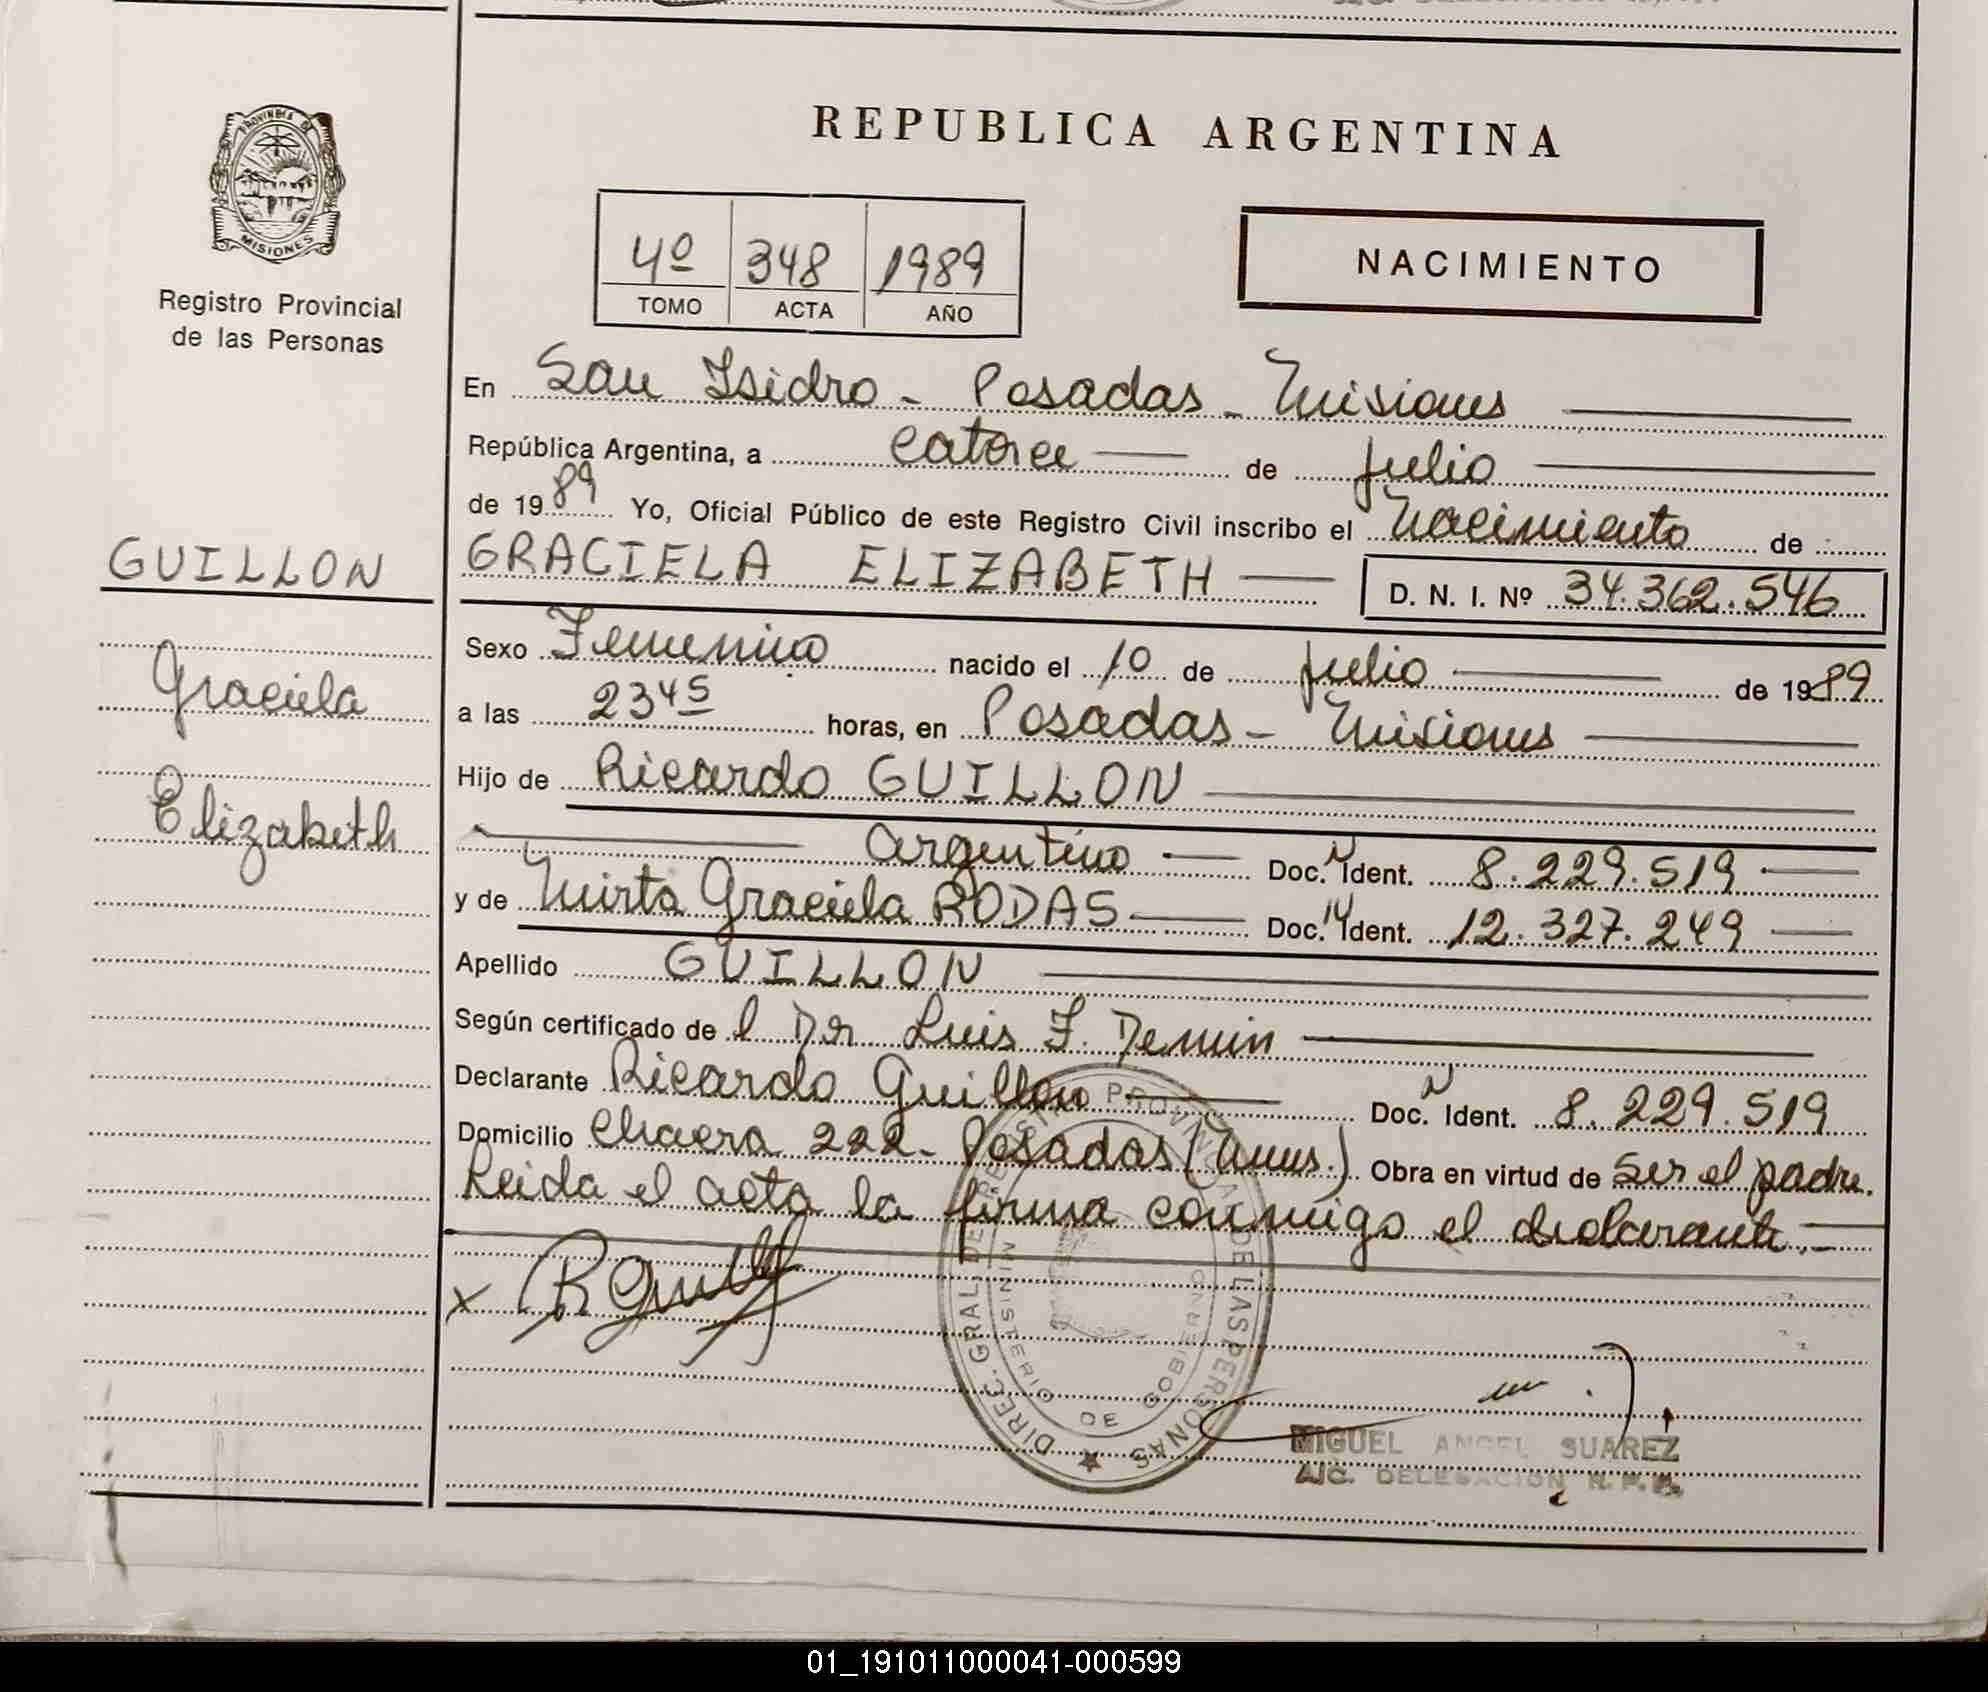 REPUBLICA ARGENTINA
PROVINCIA DE
MISIONES
Registro Provincial
de las Personas
4º 348 1989
TOMO ACTA AÑO
NACIMIENTO
En San Isidro - Posadas - Misiones
República Argentina, a catorce de julio
de 1989 Yo, Oficial Público de este Registro Civil inscribo el Nacimiento de
GUILLON
GRACIELA ELIZABETH D. N. I. Nº 34.362.546
Graciela
Elizabeth
Sexo Femenino nacido el 10 de julio de 1989
a las 23 45 horas, en Posadas - Misiones
Hijo de Ricardo GUILLON
argentino Doc. N Ident. 8.229.519
y de Mirta Graciela RODAS Doc. N Ident. 12.327.249
Apellido GUILLON
Según certificado de l Dr Luis F. Demin
Declarante Ricardo Guillon Doc. N Ident. 8.229.519
Domicilio Chacra 222 - Posadas (Mnes.) Obra en virtud de ser el padre.
Leida el acta la firma conmigo el declarante.-
x RGuill
DIREC. GRAL. DE REGISTRO PROVINCIAL DE LAS PERSONAS
MINISTERIO DE GOBIERNO
MIGUEL ANGEL SUAREZ
A/C. DELEGACION R.P.P.
01_191011000041-000599